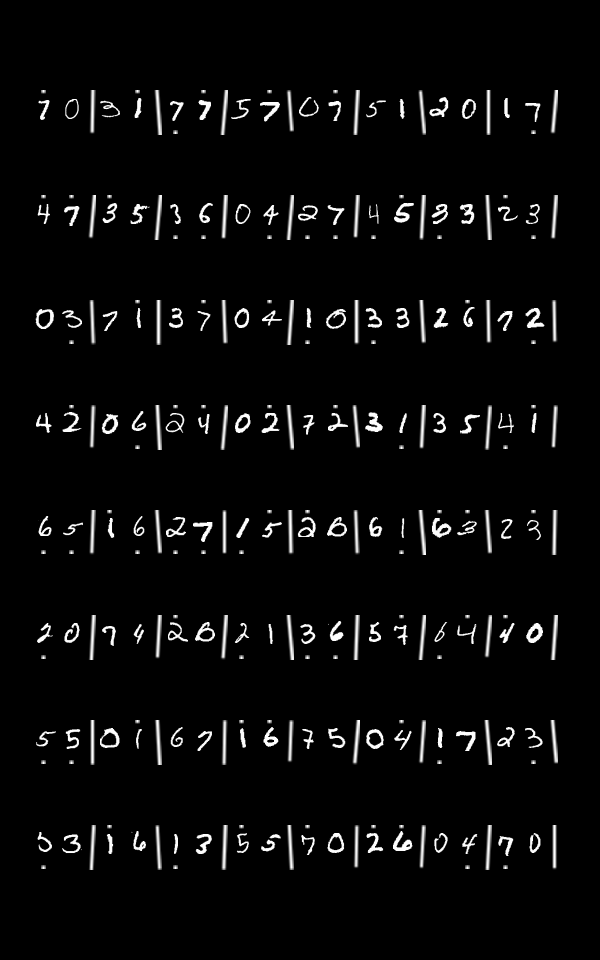 7̇ 0 | 3 1̇ | 7̣ 7̇ | 5 7̇ | 0 7̇ | 5 1 | 2 0 | 1 7̣ |
4̇ 7̇ | 3̇ 5 | 3̣ 6̣ | 0 4̣ | 2̣ 7̣ | 4̣ 5̇ | 3̣ 3 | 2̇ 3̣ |
0 3̣ | 7 1̇ | 3 7̇ | 0 4̇ | 1̣ 0 | 3̣ 3 | 2 6̇ | 7 2̣ |
4 2̇ | 0 6̣ | 2̇ 4̇ | 0 2̇ | 7 2̇ | 3 1̣ | 3 5 | 4̣ 1̇ |
6̣ 5̣ | 1̇ 6̣ | 2̣ 7̣ | 1̣ 5̇ | 2̇ 6 | 6 1̣ | 6̇ 3̇ | 2 3̇ |
2̣ 0 | 7 4 | 2̇ 6 | 2̣ 1 | 3̣ 6̣ | 5 7̇ | 6̣ 4̇ | 4̇ 0 |
5̣ 5̣ | 0 1̇ | 6 7 | 1̇ 6̇ | 7 5 | 0 4̇ | 1̣ 7 | 2 3̣ |
5̣ 3 | 1̇ 6 | 1̣ 3 | 5̇ 5 | 7̇ 0 | 2̇ 6̇ | 0 4̣ | 7̣ 0 |